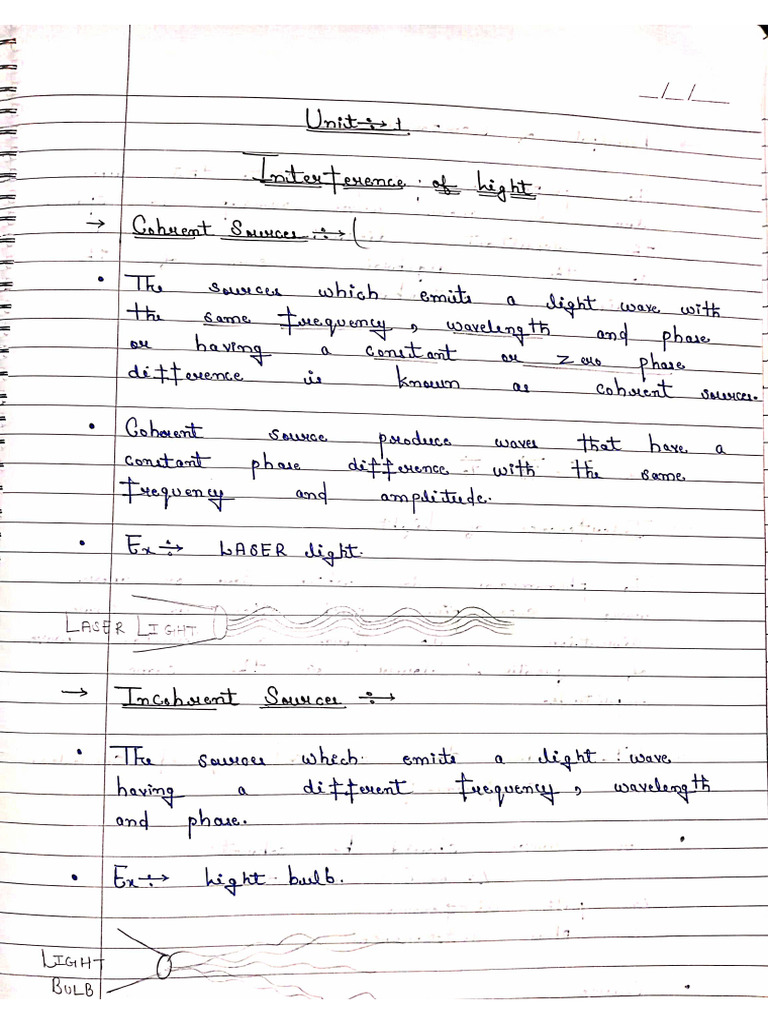 _/_/__
Unit ÷→ 1
Interference of Light.
→ Cohrent Sources ÷→ (
• The sources which emits a light wave with
the same frequency, wavelength and phase
or having a constant or zero phase
difference is known as coherent sources.
• Coherent source produce waves that have a
constant phase difference with the same
frequency and amplitude.
• Ex ÷→ LASER light.
LASER LIGHT
→ Incohrent Sources ÷→
• The sources which emits a light wave
having a different frequency, wavelength
and phase.
• Ex ÷→ Light bulb.
LIGHT
BULB